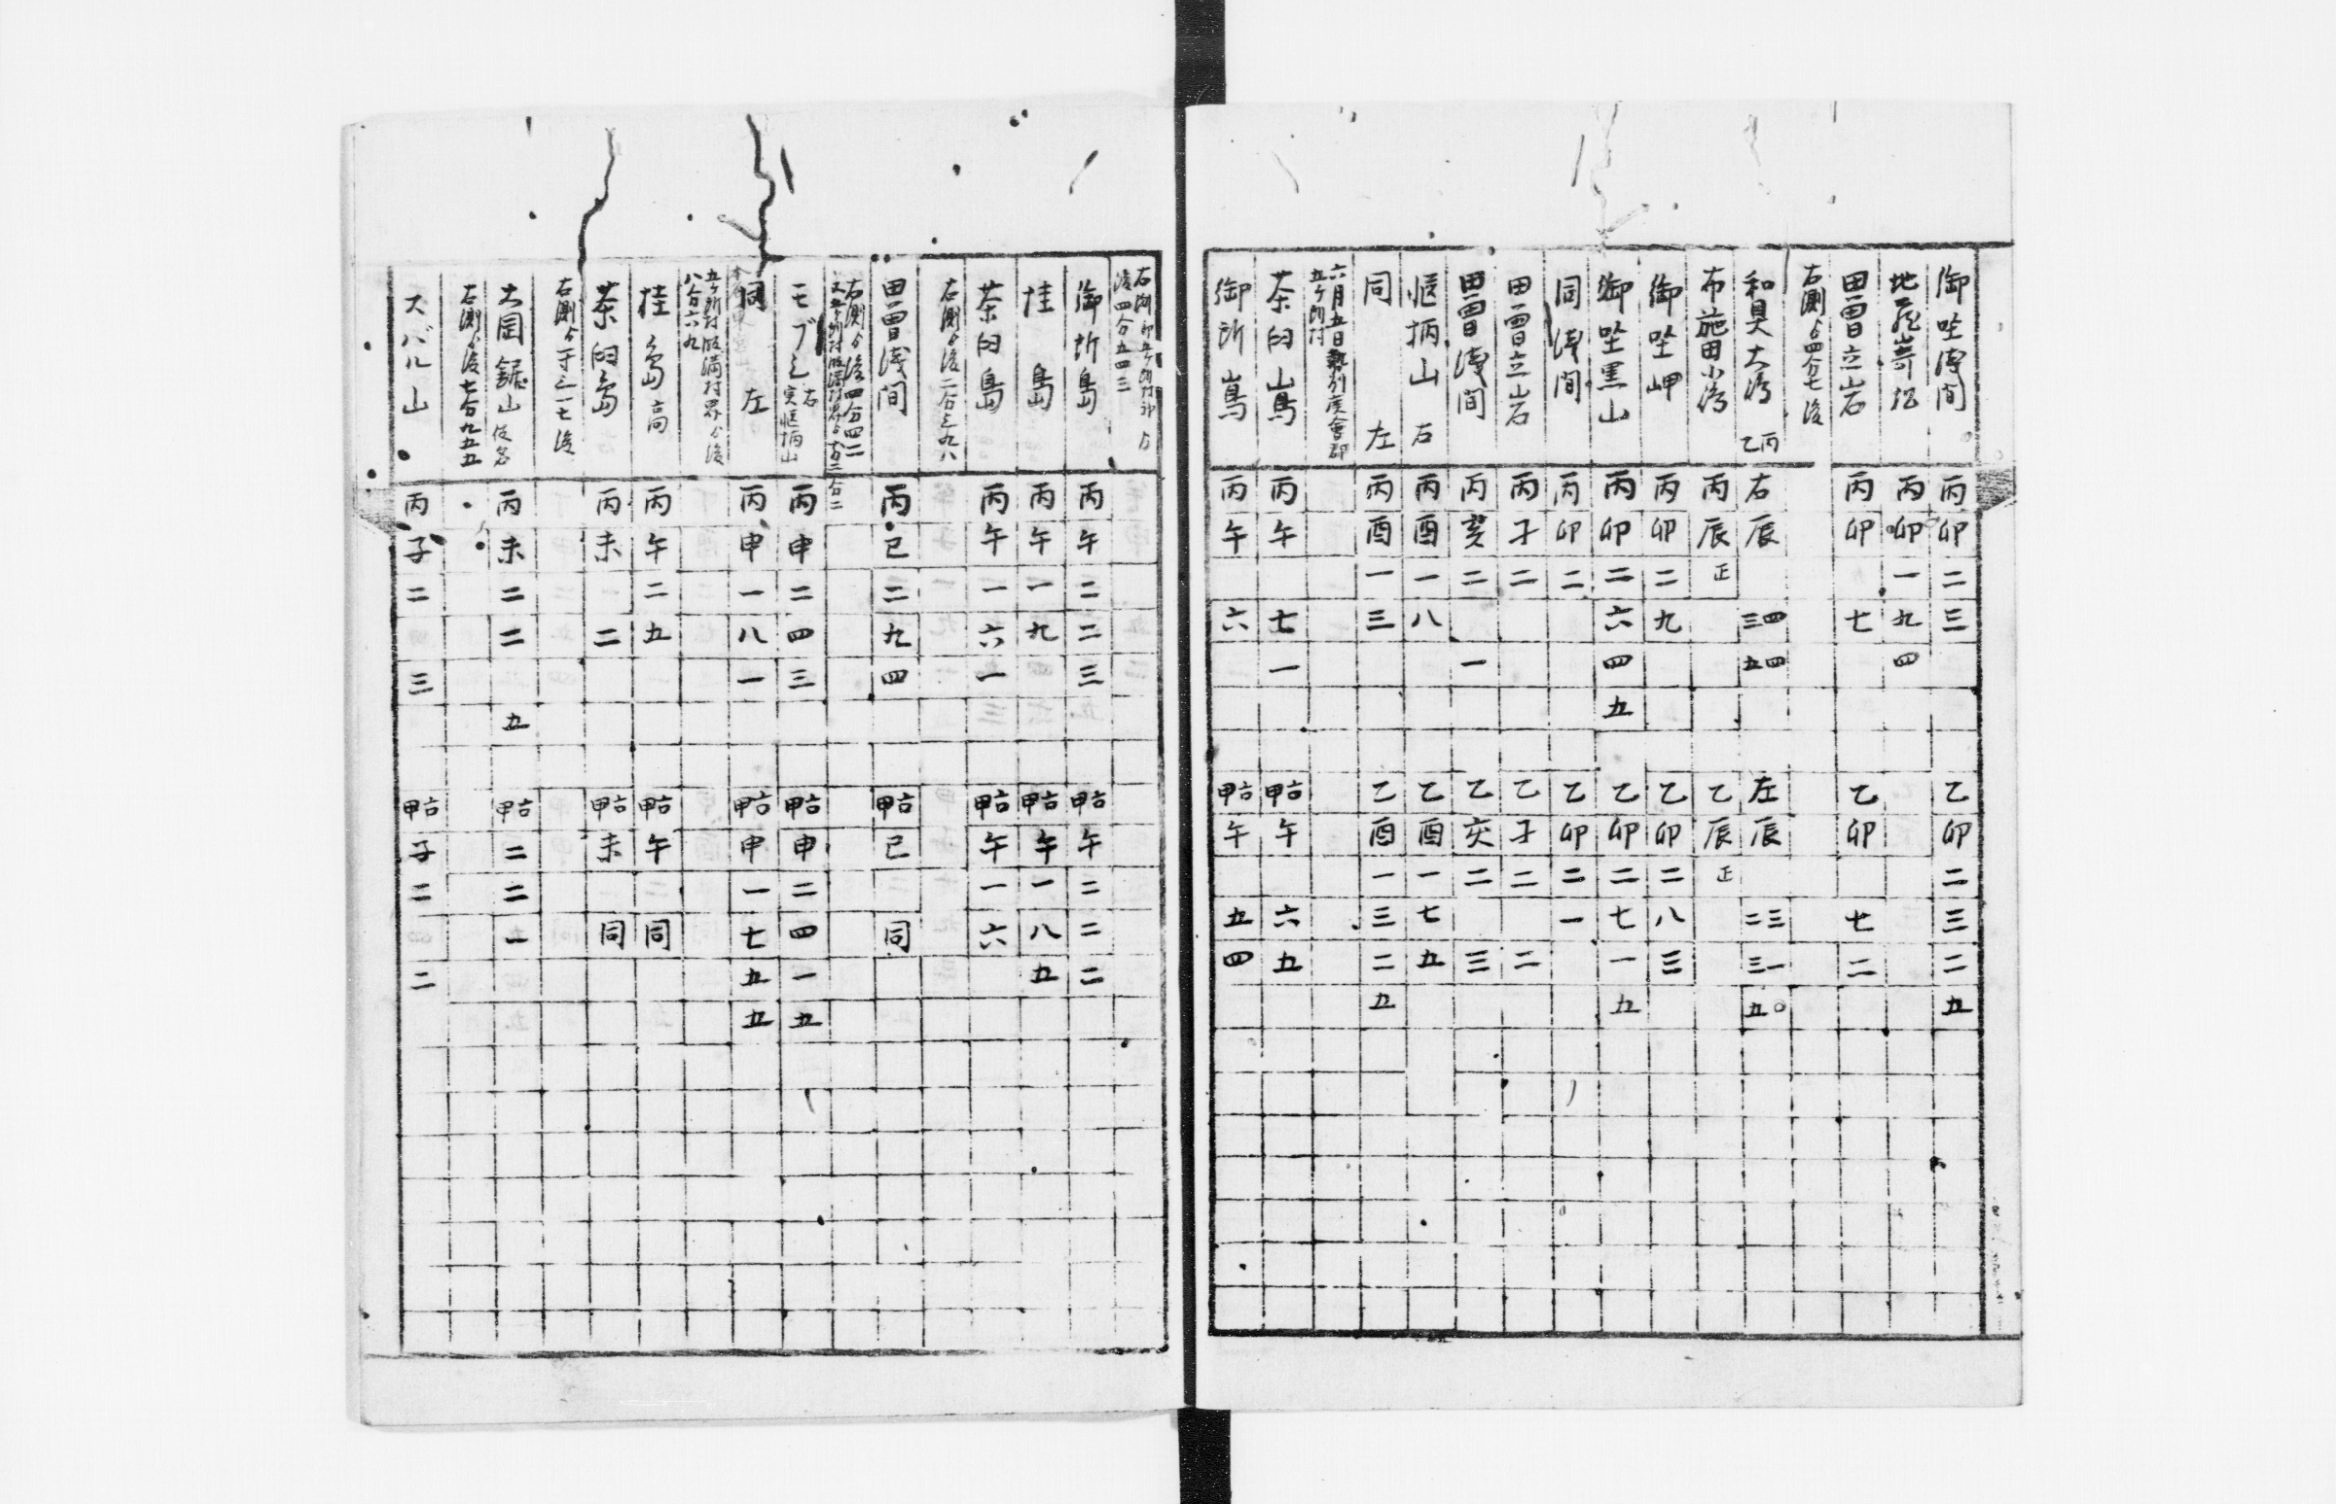 御坐浅間 丙卯二三 乙卯二三二五
地蔵嵜 丙卯一九四
田曽立岩 丙卯七 乙卯七二
右測ゟ四分七后
和具大湾 丙乙 右辰 四三 四五 左辰 三二 一三 〇五
布施田小湾 丙辰正 乙辰正
御坐岬 丙卯二九 乙卯二八三
御坐黒山 丙卯二六四五 乙卯二七一五
同浅間 丙卯二 乙卯二一
田曽立岩 丙子二 乙子二二
田曽浅間 丙亥二一 乙亥二三
悩柄山 右 丙酉一八 乙酉一七五
同 左 丙酉一三 乙酉一三二五
六月五日 勢州度會郡
五ケ所村
茶臼嶌 丙午七一 甲古午六五
御所嶌 丙午六 甲古午五四
後四分五四三
御所島 丙午二二三 甲古午二二二
桂島 丙午一九 甲古午一八五
茶臼島 丙午一六一 甲古午一六
右測ゟ後二分三九八
田曽浅間 丙巳二九四 甲古巳同
右測ゟ後四分四二
モブシ 右 丙申二四三 甲古申二四一五
同 左 丙申一八一 甲古申一七五五
五ケ所村 満村界ゟ後
八分六九
桂島 高 丙午二五 甲古午同
茶臼島 丙未二 甲古未同
右測ゟ一寸三一七後
大岡鋸山 仮名 丙未二二五 甲古二二一
右測ゟ後七分九五五
スバル山 丙子二三 甲古子二二